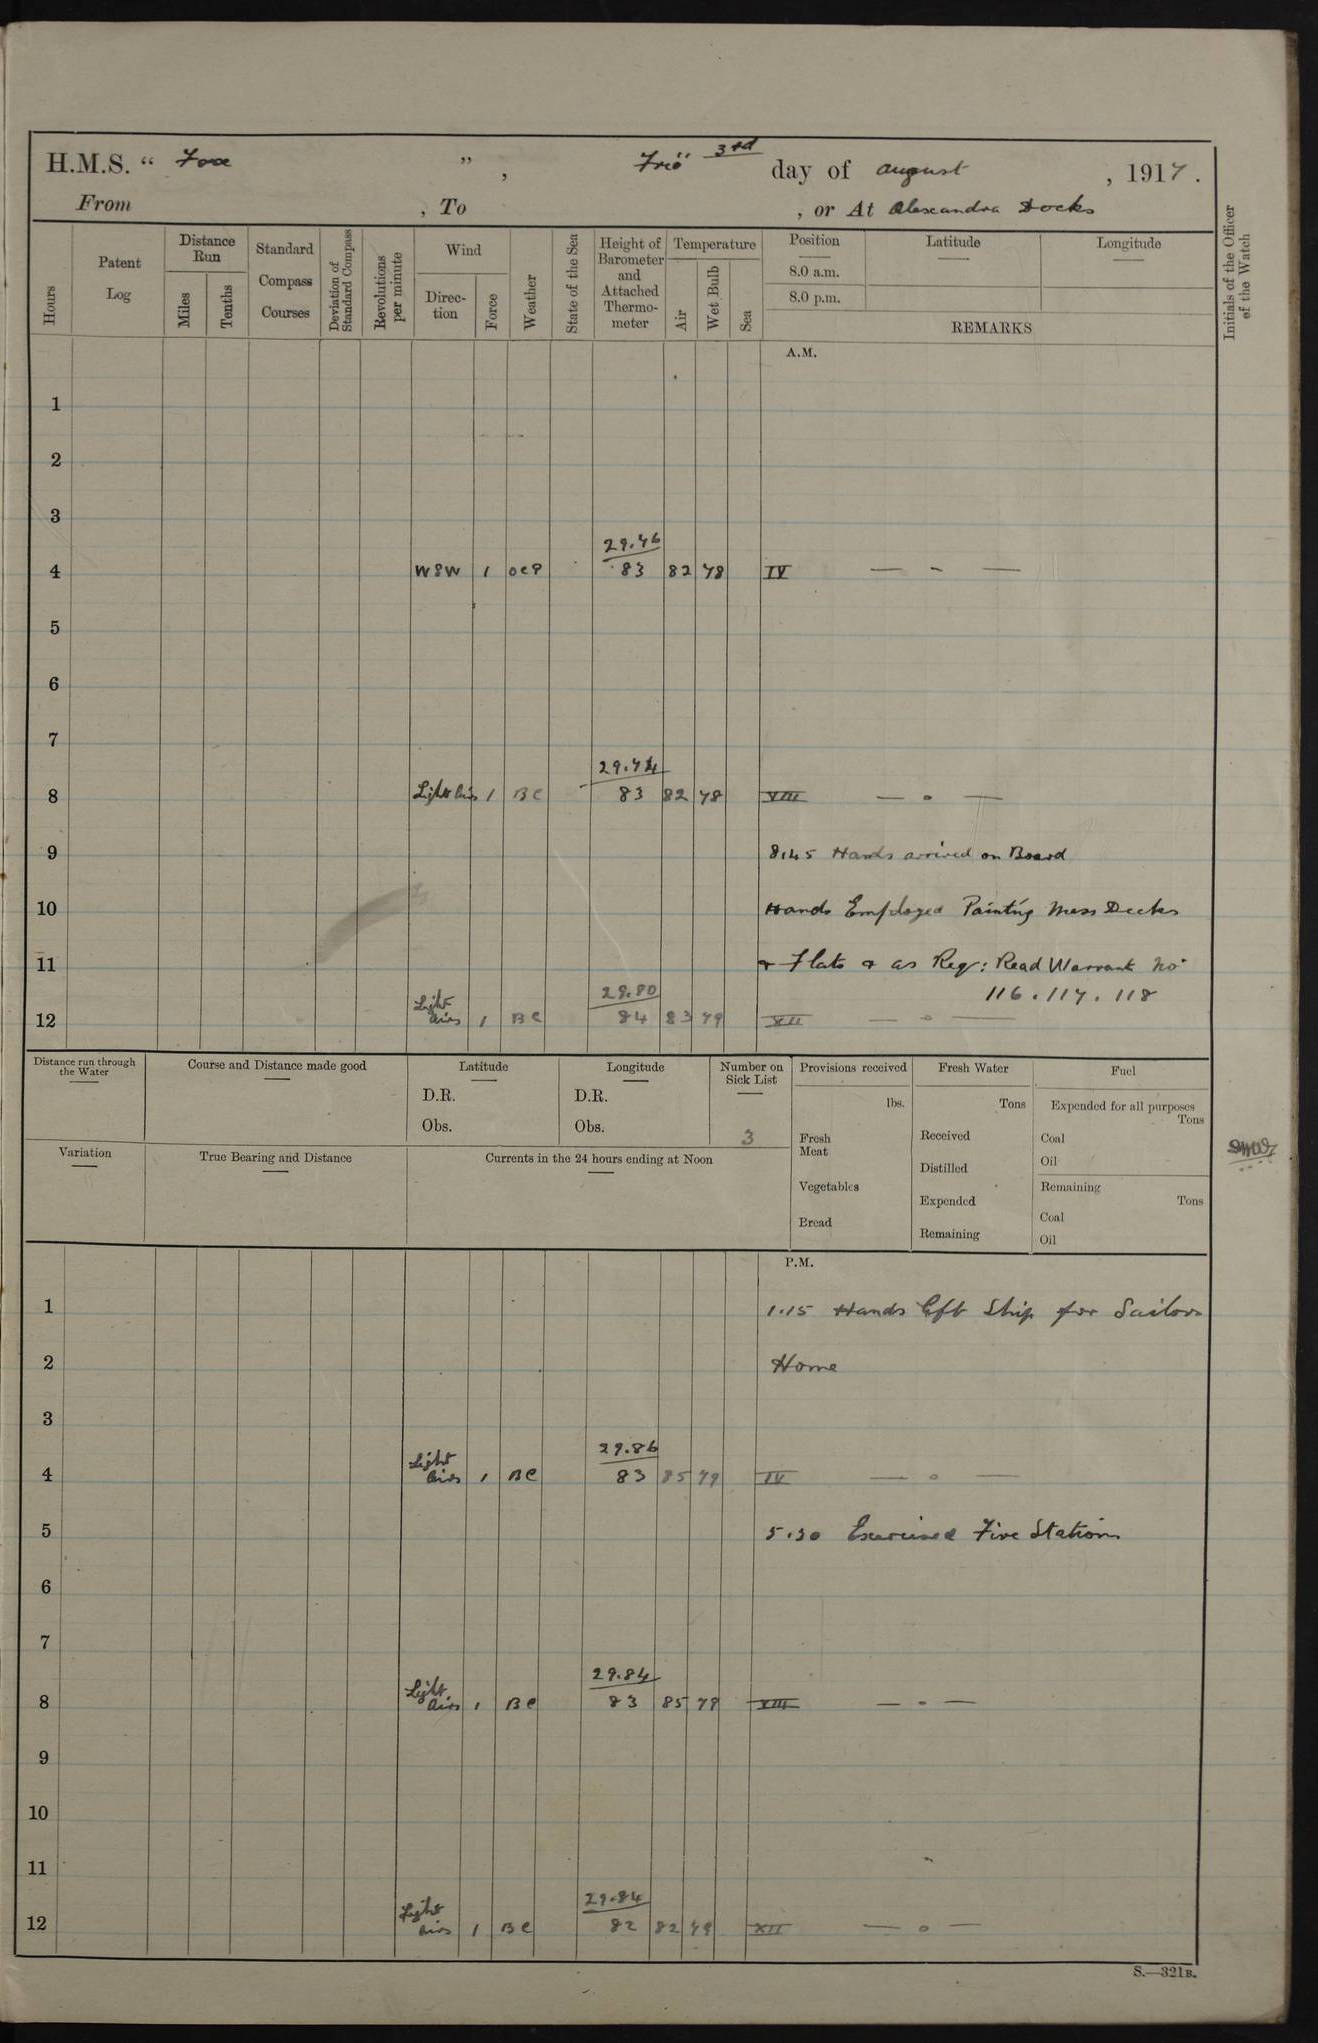 H.M.S. “ Fox ”, Frid 3rd day of August , 1917.
From , To , or At Alexandra Docks
Hours
Patent Log
Distance Run
Miles
Tenths
Standard Compass Courses
Deviation of Standard Compass
Revolutions per minute
Wind
Direc-tion
Force
Weather
State of the Sea
Height of Barometer and Attached Thermo-meter
Temperature
Air
Wet Bulb
Sea
Position
8.0 a.m.
8.0 p.m.
Latitude
Longitude
REMARKS
Initials of the Officer of the Watch
A.M.
1
2
3
29.76
4 WSW 1 83 82 78 IV — - —
5
6
7
29.74
8 Light Airs 1 BC 83 82 78 VIII — o —
9 8.45 Hands arrived on Board
10 Hands Employed Painting Mess Decks
11 & Flats & as Req: Read Warrant No
29.80 116. 117. 118
12 Light Airs 1 BC 84 83 79 XII — o —
Distance run through the Water
Course and Distance made good
Latitude
D.R.
Obs.
Longitude
D.R.
Obs.
Number on Sick List
3
Provisions received
lbs.
Fresh Meat
Vegetables
Bread
Fresh Water
Tons
Received
Distilled
Expended
Remaining
Fuel
Expended for all purposes
Tons
Coal
Oil
Remaining
Tons
Coal
Oil
Variation
True Bearing and Distance
Currents in the 24 hours ending at Noon
P.M.
1 1.15 Hands left Ship for Sailors
2 Home
3
29.86
4 Light Airs 1 BC 83 85 79 IV — o —
5 5.30 Exercised Fire Stations
6
7
29.84
8 Light Airs 1 BC 83 85 79 VIII — o —
9
10
11
29.84
12 Light Airs 1 BC 82 82 79 XII — o —
S.—321B.